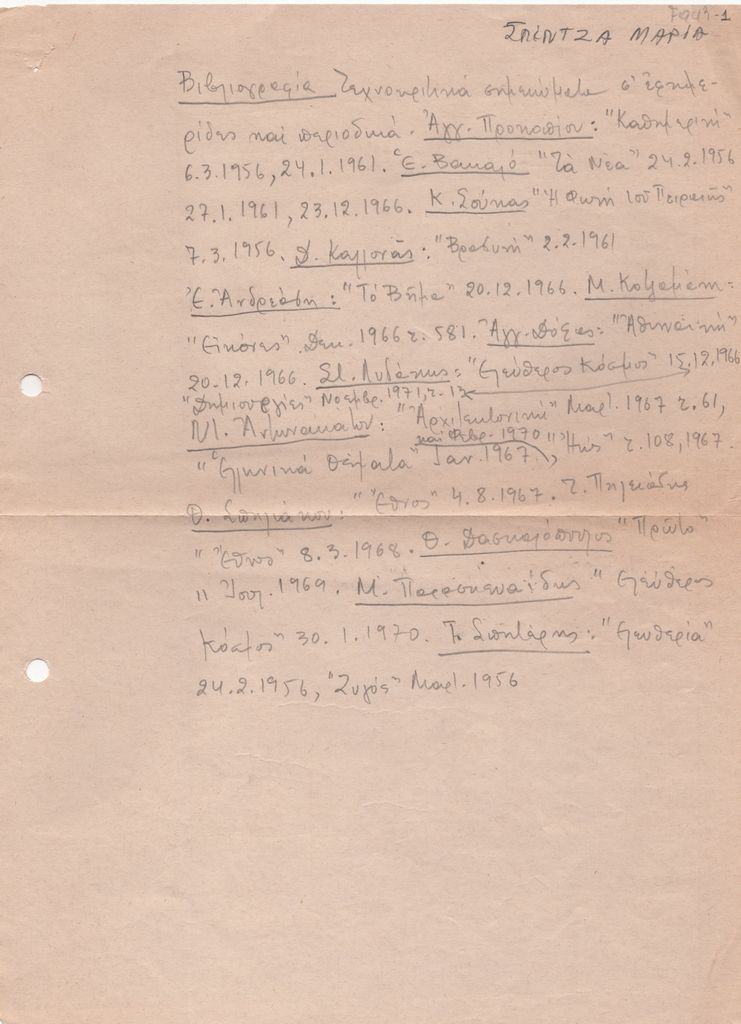 ΣΠΕΝΤΖΑ ΜΑΡΙΑ
Βιβλιογραφία Τεχνοκριτικά σημειώματα σ' ἐφημε-
ρίδες καί περιοδικά. Ἀγγ. Προκοπίου: "Καθημερινή"
6.3.1956, 24.1.1961. Ἑ. Βακαλό "Τά Νέα" 24.2.1956
27.1.1961, 23.12.1966. Κ. Σούκας "Ἡ Φωνή τοῦ Πειραιῶς"
7.3.1956. Δ. Καλλονᾶς: "Βραδυνή" 2.2.1961
Ἑ. Ἀνδρεάδη: "Τό Βῆμα" 20.12.1966. Μ. Κοτζαμάνη:
"Εἰκόνες" Δεκ. 1966 τ. 581. Ἀγγ. Δόξας: "Ἀθηναϊκή"
20.12.1966. Στ. Λυδάκης: "Ἐλεύθερος Κόσμος" 15.12.1966
"Δημιουργίες" Νοεμβρ. 1971, τ. 12
Ντ. Ἀντωνακάτου: "Ἀρχιτεκτονική" Μαρτ. 1967 τ. 61,
καί Φεβρ. 1970
"Ἑλληνικά Θέματα" Ιαν. 1967, "Ἠώς" τ. 108, 1967.
Θ. Σπηλιάκου: "Ἔθνος" 4.8.1967. Τ. Πηλειάδης
"Ἔθνος" 8.3.1968. Θ. Δασκαλόπουλος "Πρῶτο"
" Ἰουλ. 1969. Μ. Παρασκευαΐδης "Ἐλεύθερος
Κόσμος" 30.1.1970. Τ. Σπητέρης: "Ἐλευθερία"
24.2.1956, "Ζυγός" Μαρτ. 1956